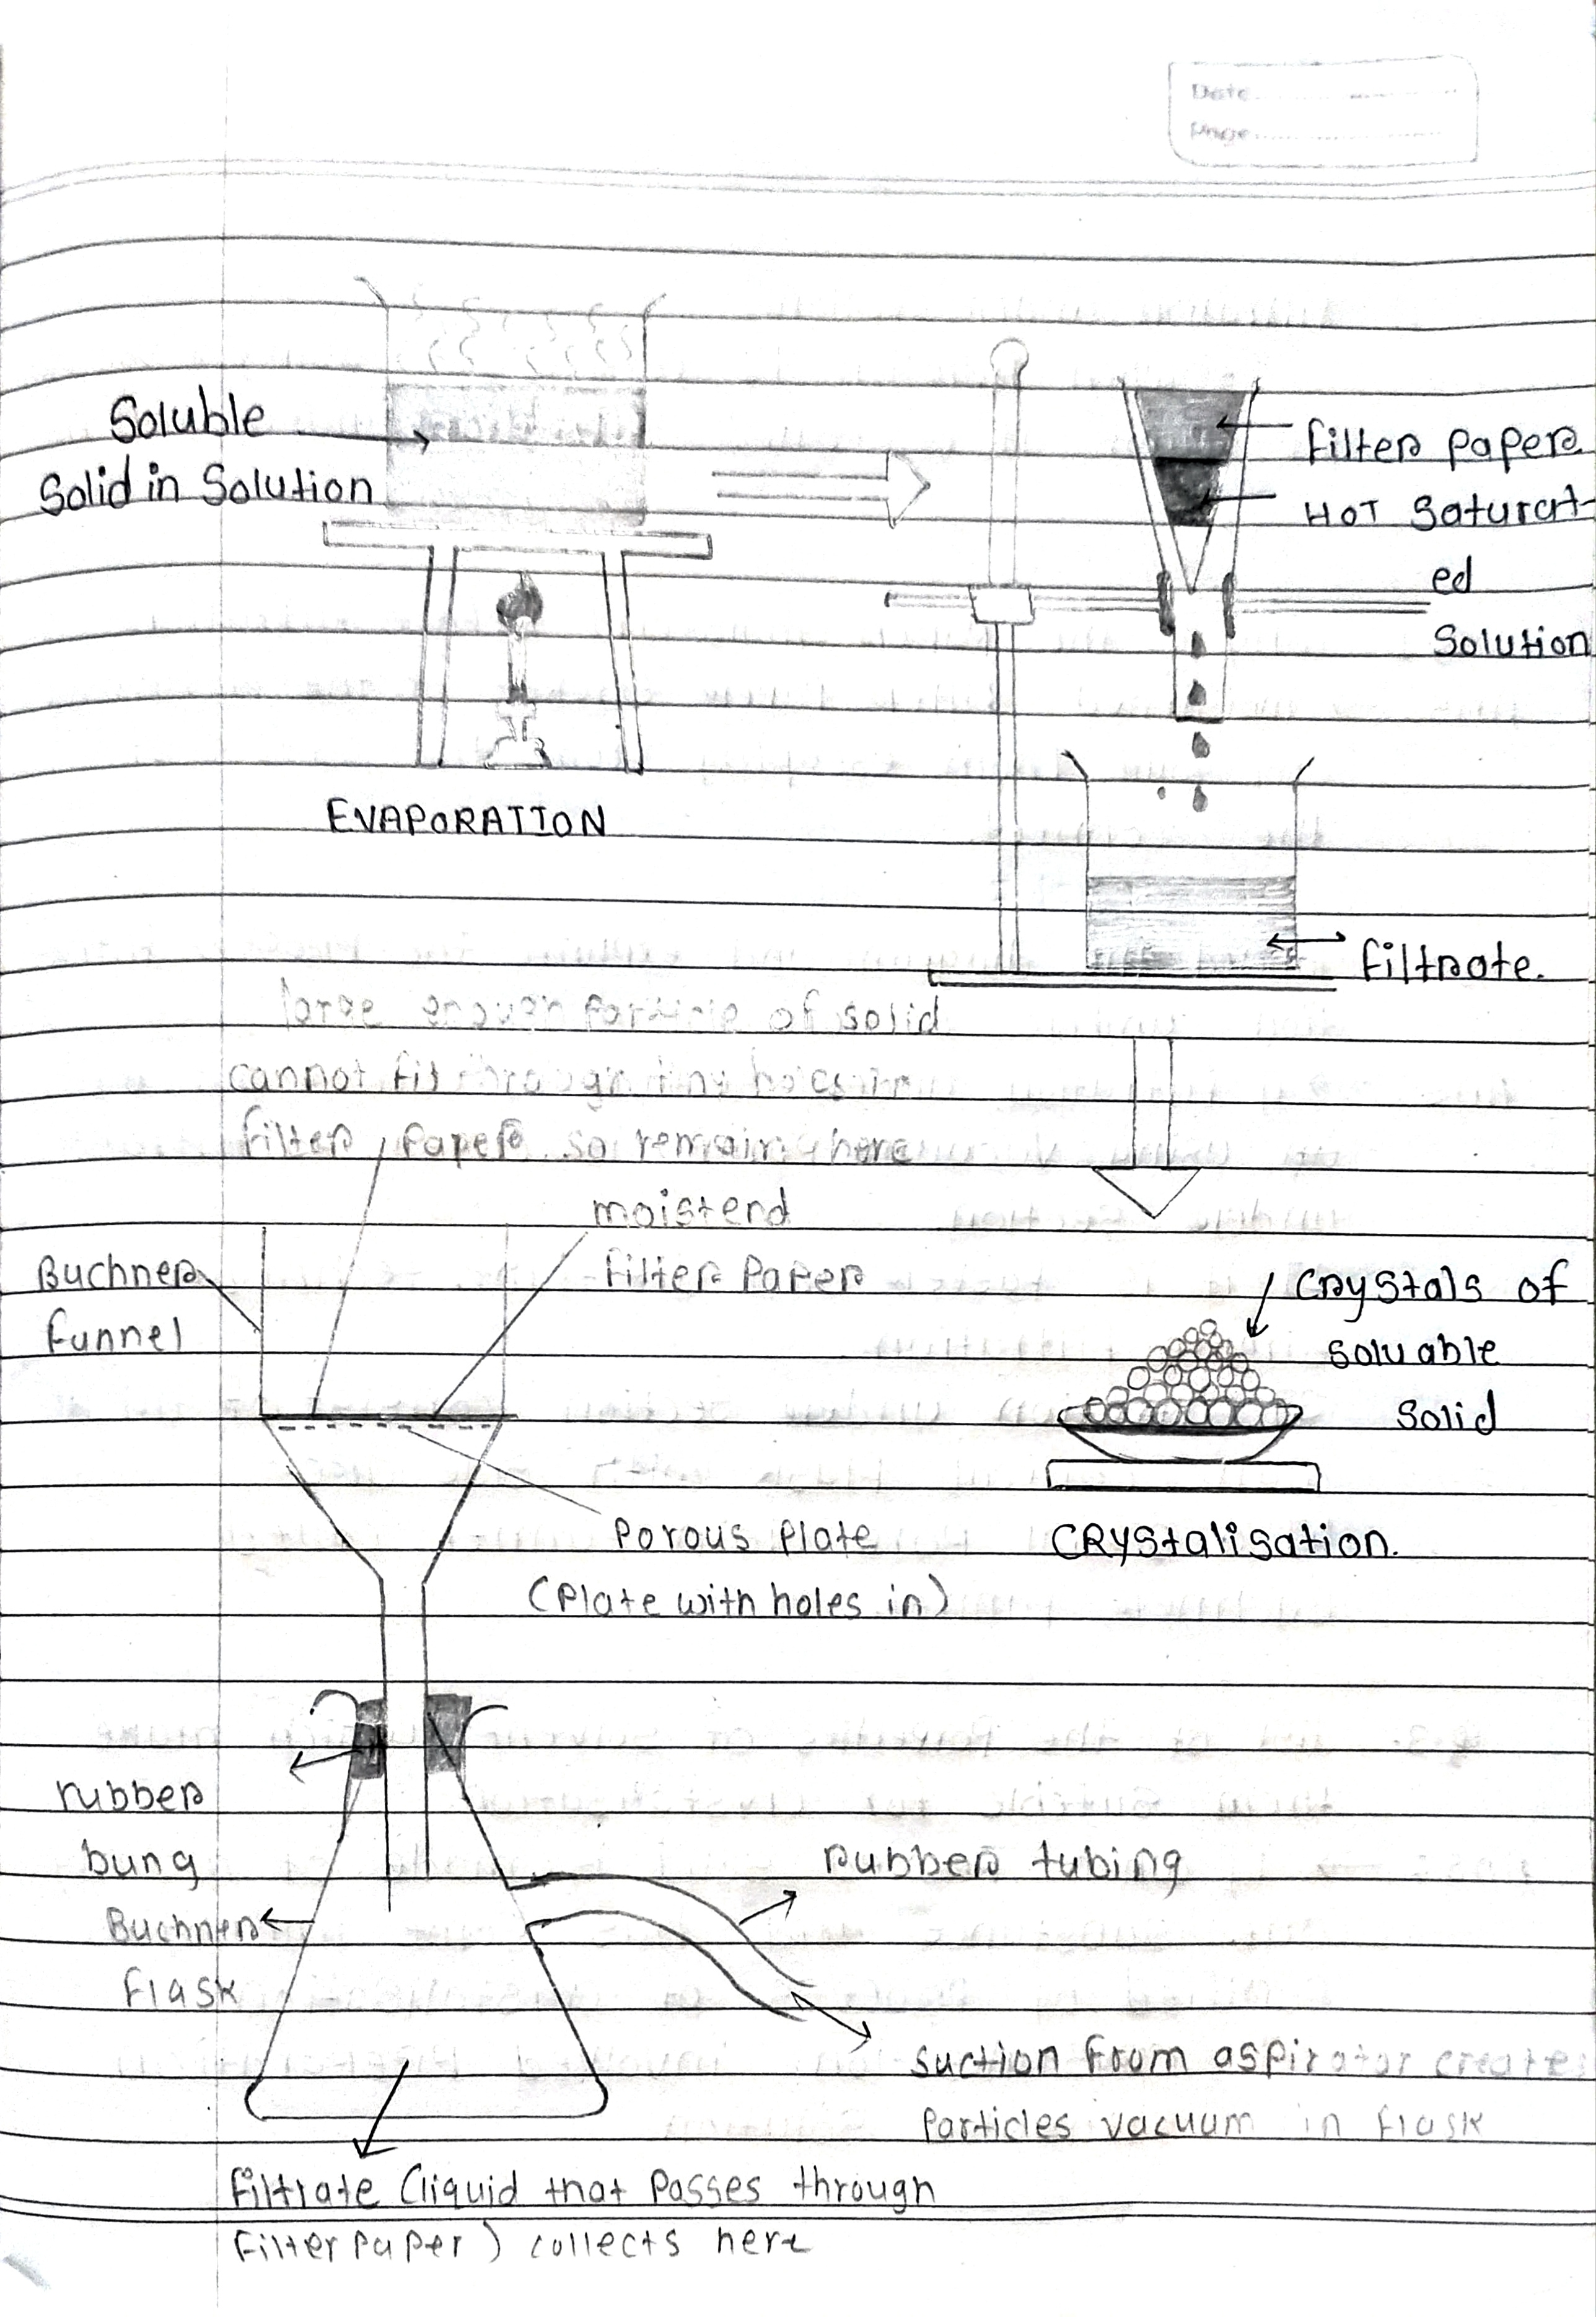 Date
Page
Soluble
Solid in Solution
filter paper
HOT Saturat-
ed
Solution
EVAPORATION
filtrate.
large enough of solid
cannot fit
filter paper so remain here
moisterd
filter Paper
Buchner
funnel
crystals of
soluable
solid
Porous Plate
(Plate with holes in)
CRYstalisation.
rubber
bung
rubber tubing
Buchner
flask
suction from aspirator create
Particles vacuum in flask
filtrate (liquid that Passes through
filter paper) collects here